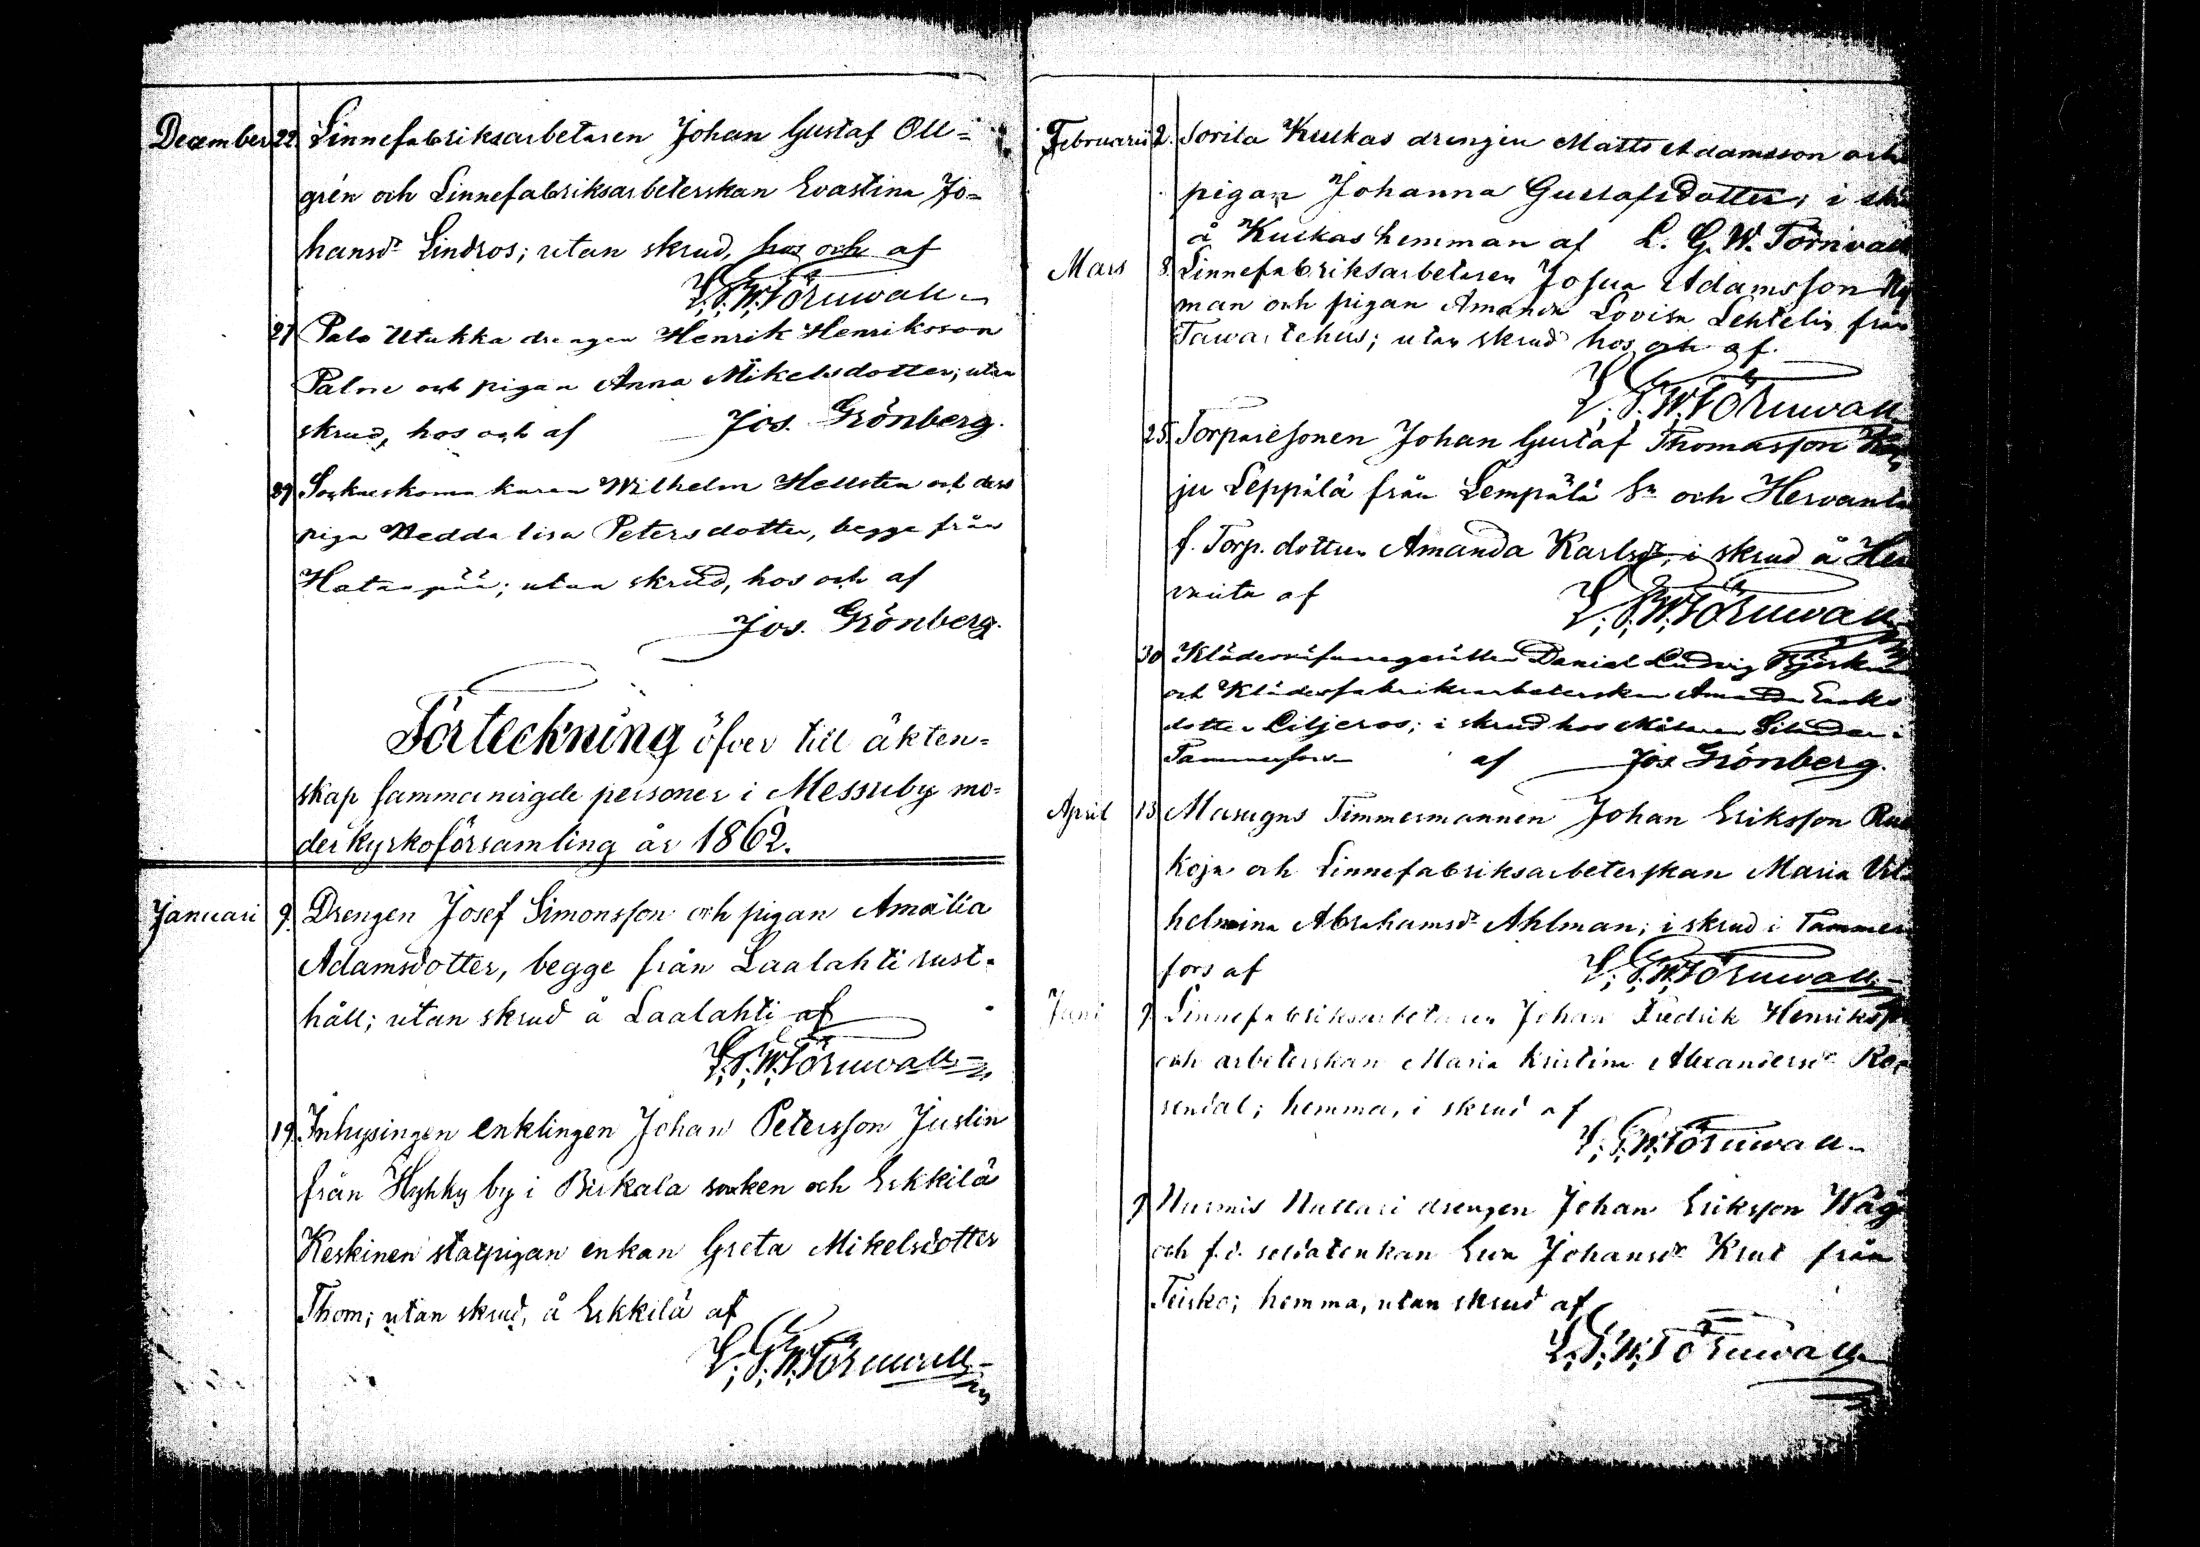 December 22. Linnefabriksarbetaren Johan Gustaf Oll=
grén och Linnefabriksarbeterskan Evastina Jo=
hansdr Lindros; utan skrud, hos och af
L. G. W. Törnwall
27 Palo Utukka drengen Henrik Henriksson
Palm och pigan Anna Mikelsdotter; utan
skrud, hos och af Jos. Grönberg.
29 Wilhelm Hellsten och dess
piga Hedda Lisa Petersdotter, begge från
Hatanpää; utan skrud, hos och af
Jos. Grönberg.
Förteckning öfver till äkten=
skap sammanvigde personer i Messuby mo=
derkyrkoförsamling år 1862.
Januari 9. Drengen Josef Simonsson och pigan Amalia
Adamsdotter, begge från Laalahti rust=
håll; utan skrud å Laalahti af
L. G. W. Törnwall
19. Inhysingen enklingen Johan Petersson Justin
från Hyhky by i Birkala socken och Erkkilä
Keskinen statpigan enkan Greta Mikelsdotter
Thom; utan skrud, å Erkkilä af
L. G. W. Törnwall
Februarii 2. Sorila Kuckas drengen Matts Adamsson och
pigan Johanna Gustafsdotter; i
å Kuckas hemman af L. G. W. Törnwall
Mars 8. Linnefabriksarbetaren Josua Adamsson Ny
man och pigan Amanda Lovisa Lehtelin från
Tawastehus; utan skrud hos och af
L. G. W. Törnwall
25. Torparesonen Johan Gustaf Thomasson
ju Leppälä från Lempälä Sn och Hervanta
f. Torp. dottren Amanda Karlsdr, i skrud å Her
vanta af L. G. W. Törnwall
30 Daniel Ludvig
och Klädesfabriksarbeterskan Amanda Eriks
dotter Liljeros; i skrud hos
Tammerfors af Jos. Grönberg.
April 13 Masugns Timmermannen Johan Eriksson
koja och Linnefabriksarbeterskan Maria Vil=
helmina Abrahamsdr Ahlman; i skrud i Tammer
fors af L. G. W. Törnwall
Juni 9 Linnefabriksarbetaren Johan Fredrik Henriksson
och arbeterskan Maria Kristina Alexandersdr Ro
sendal; hemma, i skrud af
L. G. W. Törnwall
9 Nurmis Nattari drengen Johan Eriksson Wåg
och f.d. soldatenkan Eva Johansdr Krut från
Teisko; hemma, utan skrud af
L. G. W. Törnwall